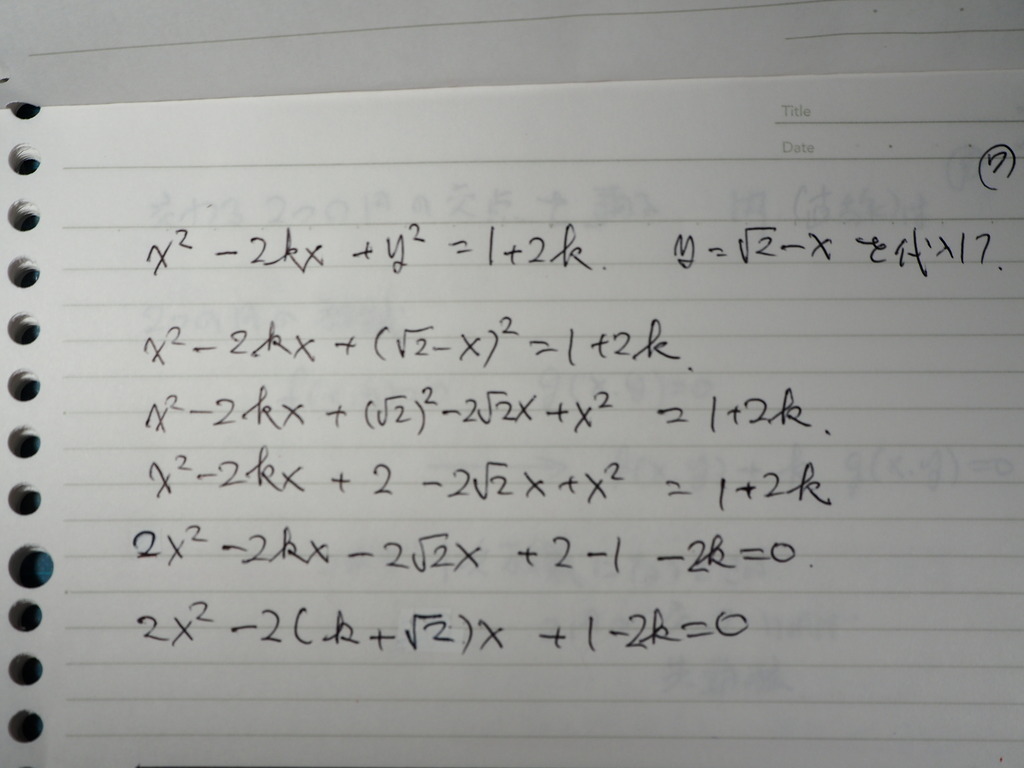 Title
Date
⑦
x² - 2kx + y² = 1 + 2k. y = √2 - x を代入して.
x² - 2kx + (√2 - x)² = 1 + 2k.
x² - 2kx + (√2)² - 2√2x + x² = 1 + 2k.
x² - 2kx + 2 - 2√2x + x² = 1 + 2k
2x² - 2kx - 2√2x + 2 - 1 - 2k = 0.
2x² - 2(k + √2)x + 1 - 2k = 0